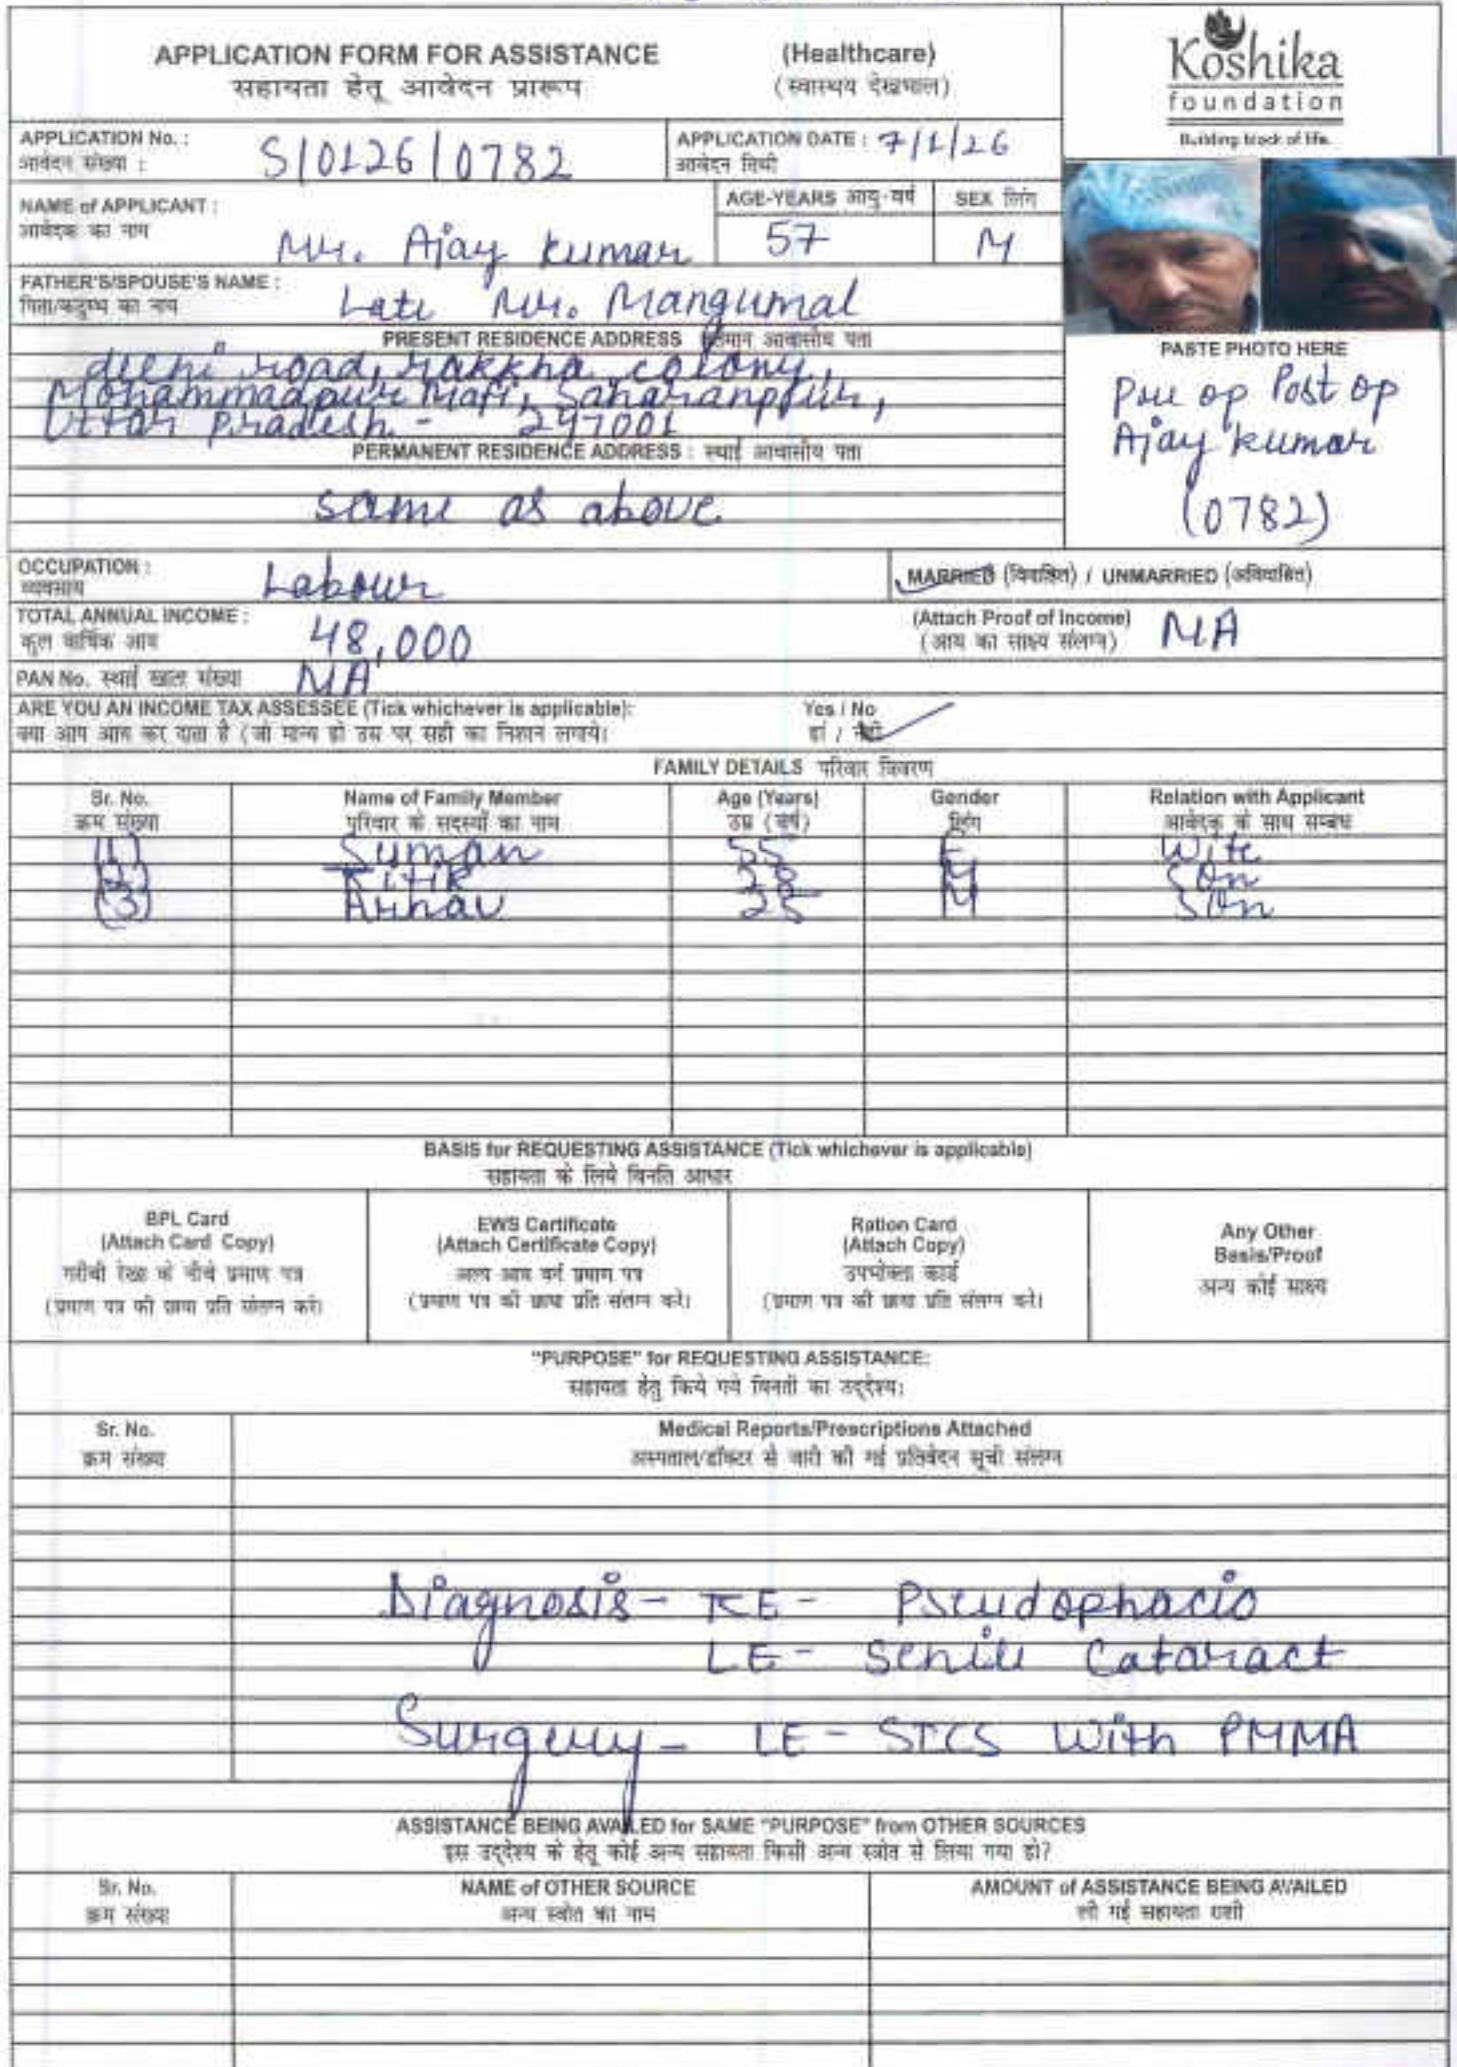 APPLICATION FORM FOR ASSISTANCE (Healthcare)
सहायता हेतू आवेदन प्रारूप (स्वास्थय देखभाल)
Koshika
foundation
Building block of life.
APPLICATION No. : S/0126/0782 APPLICATION DATE : 7/1/26
आवेदन संख्या : आवेदन तिथी
NAME of APPLICANT : Mr. Ajay Kumar AGE-YEARS आयु-वर्ष 57 SEX लिंग M
आवेदक का नाम
FATHER'S/SPOUSE'S NAME : Late Mr. Mangumal
पिता/कटुम्ब का नाम
PRESENT RESIDENCE ADDRESS वर्तमान आवासीय पता
delhi road, rakkha colony,
Mohammadpur Mafi, Saharanpur,
Uttar Pradesh - 247001
PERMANENT RESIDENCE ADDRESS : स्थाई आवासीय पता
same as above
PASTE PHOTO HERE
Pre op Post op
Ajay Kumar
(0782)
OCCUPATION : Labour MARRIED (विवाहित) / UNMARRIED (अविवाहित)
व्यवसाय
TOTAL ANNUAL INCOME : 48,000 (Attach Proof of Income) NA
कुल वार्षिक आय (आय का साक्ष्य संलग्न)
PAN No. स्थाई खाता संख्या NA
ARE YOU AN INCOME TAX ASSESSEE (Tick whichever is applicable): Yes / No
क्या आप आय कर दाता है (जो मान्य हो उस पर सही का निशान लगाये। हां / नहीं
FAMILY DETAILS परिवार विवरण
Sr. No. Name of Family Member Age (Years) Gender Relation with Applicant
क्रम संख्या परिवार के सदस्यों का नाम उम्र (वर्ष) लिंग आवेदक के साथ सम्बंध
(1) Suman 55 F Wife
(2) Ritik 28 M Son
(3) Arnav 25 M Son
BASIS for REQUESTING ASSISTANCE (Tick whichever is applicable)
सहायता के लिये विनति आधार
BPL Card
(Attach Card Copy)
गरीबी रेखा के नीचे प्रमाण पत्र
(प्रमाण पत्र की छाया प्रति संलग्न करे।
EWS Certificate
(Attach Certificate Copy)
अल्प आय वर्ग प्रमाण पत्र
(प्रमाण पत्र की छाया प्रति संलग्न करे।
Ration Card
(Attach Copy)
उपभोक्ता कार्ड
(प्रमाण पत्र की छाया प्रति संलग्न करे।
Any Other
Basis/Proof
अन्य कोई साक्ष्य
"PURPOSE" for REQUESTING ASSISTANCE:
सहायता हेतु किये गये विनती का उद्देश्य:
Sr. No. Medical Reports/Prescriptions Attached
क्रम संख्या अस्पताल/डॉक्टर से जारी की गई प्रतिवेदन सूची संलग्न
Diagnosis - RE - Pseudophacio
LE - Senile Cataract
Surgery - LE - SICS with PMMA
ASSISTANCE BEING AVAILED for SAME "PURPOSE" from OTHER SOURCES
इस उद्देश्य के हेतु कोई अन्य सहायता किसी अन्य स्त्रोत से लिया गया हो?
Sr. No. NAME of OTHER SOURCE AMOUNT of ASSISTANCE BEING AVAILED
क्रम संख्या अन्य स्त्रोत का नाम ली गई सहायता राशी